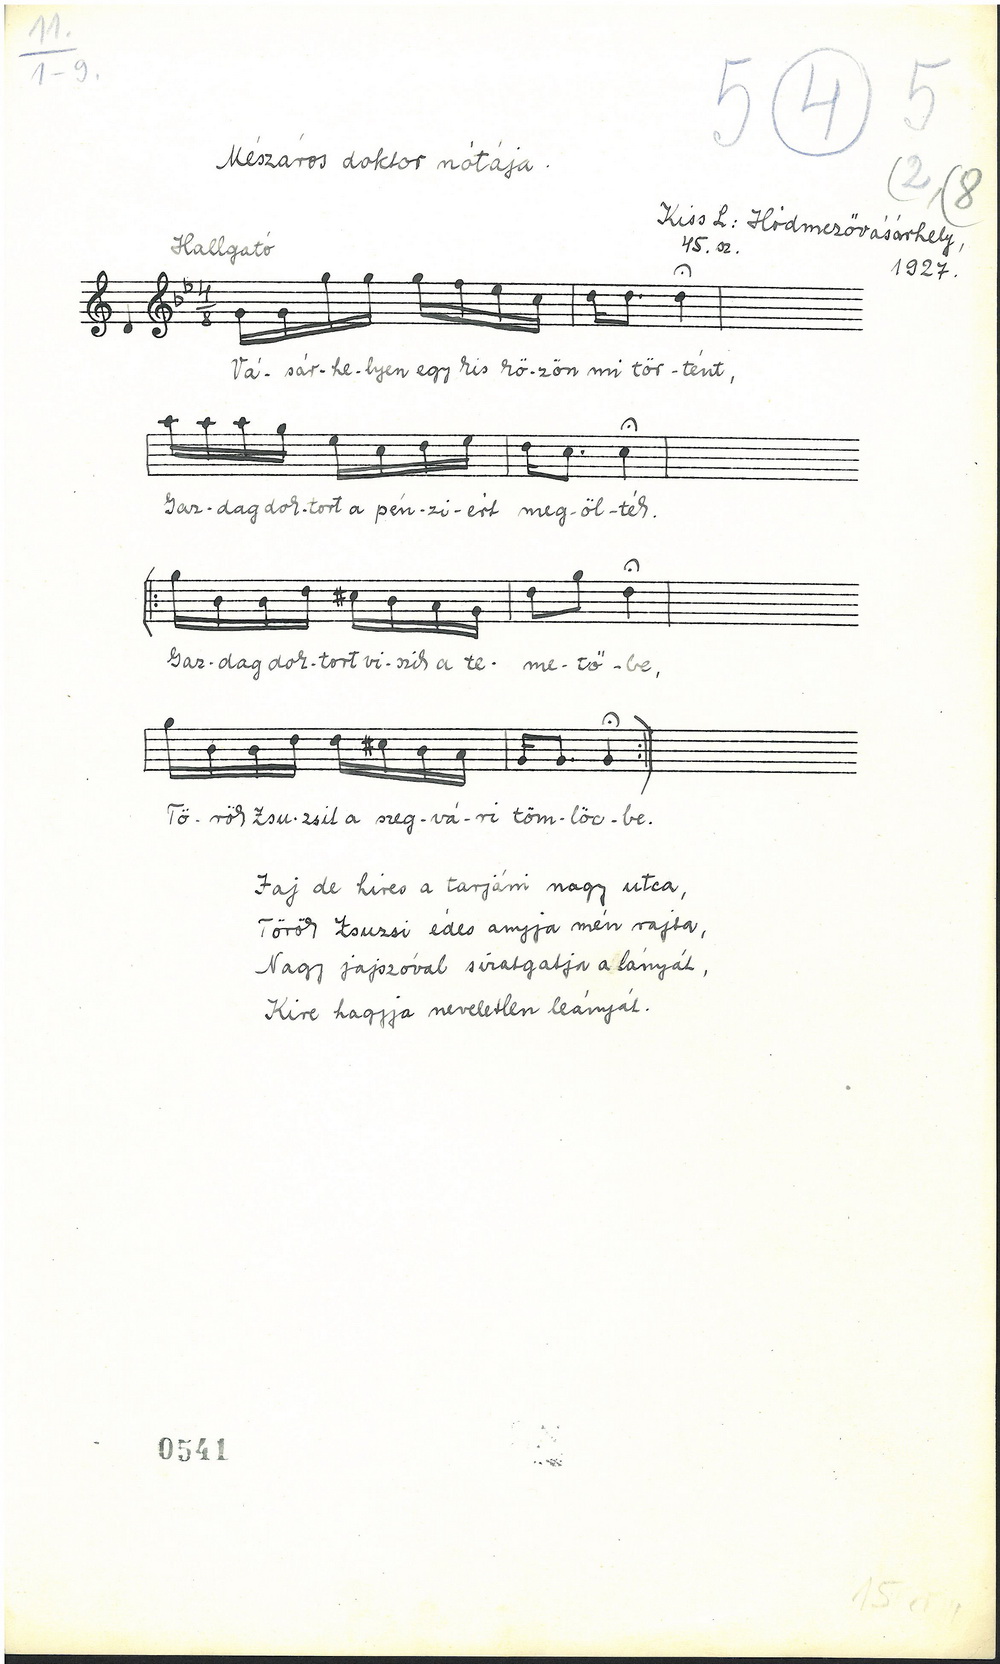 11.
1-9.
5 4 5
(2,(8
Mészáros doktor nótája.
Kiss L.: Hódmezővásárhely,
45. sz.
1927.
Hallgató
4
8
Vá- sár-he-lyen egy kis kö-zön mi tör-tént,
Gaz-dag dok-tort a pén-zi-ért meg-öl-ték.
Gaz-dag dok-tort vi-szik a te- me-tő-be,
Tö-rök Zsu-zsit a szeg-vá-ri töm-löc-be.
Jaj de hires a tarjáni nagy utca,
Török Zsuzsi édes anyja mén rajta,
Nagy jajszóval siratgatja a lányát,
Kire hagyja neveletlen leányát.
0541
15